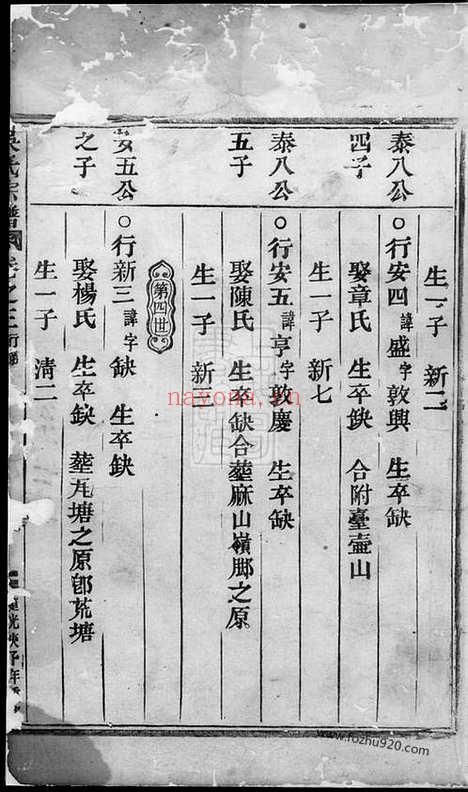 生一子 新二
泰八公四子
○行安四 諱盛 字敦興 生卒缺
娶章氏 生卒缺 合附臺壼山
生一子 新七
泰八公五子
○行安五 諱亨 字敦慶 生卒缺
娶陳氏 生卒缺 合塟麻山嶺腳之原
生一子 新三
第四世
安五公之子
○行新三 諱 字缺 生卒缺
娶楊氏 生卒缺 塟瓦塘之原即荒塘
生一子 清二
氏宗譜
光庚子年
nayona.cn
www.fozhu920.com